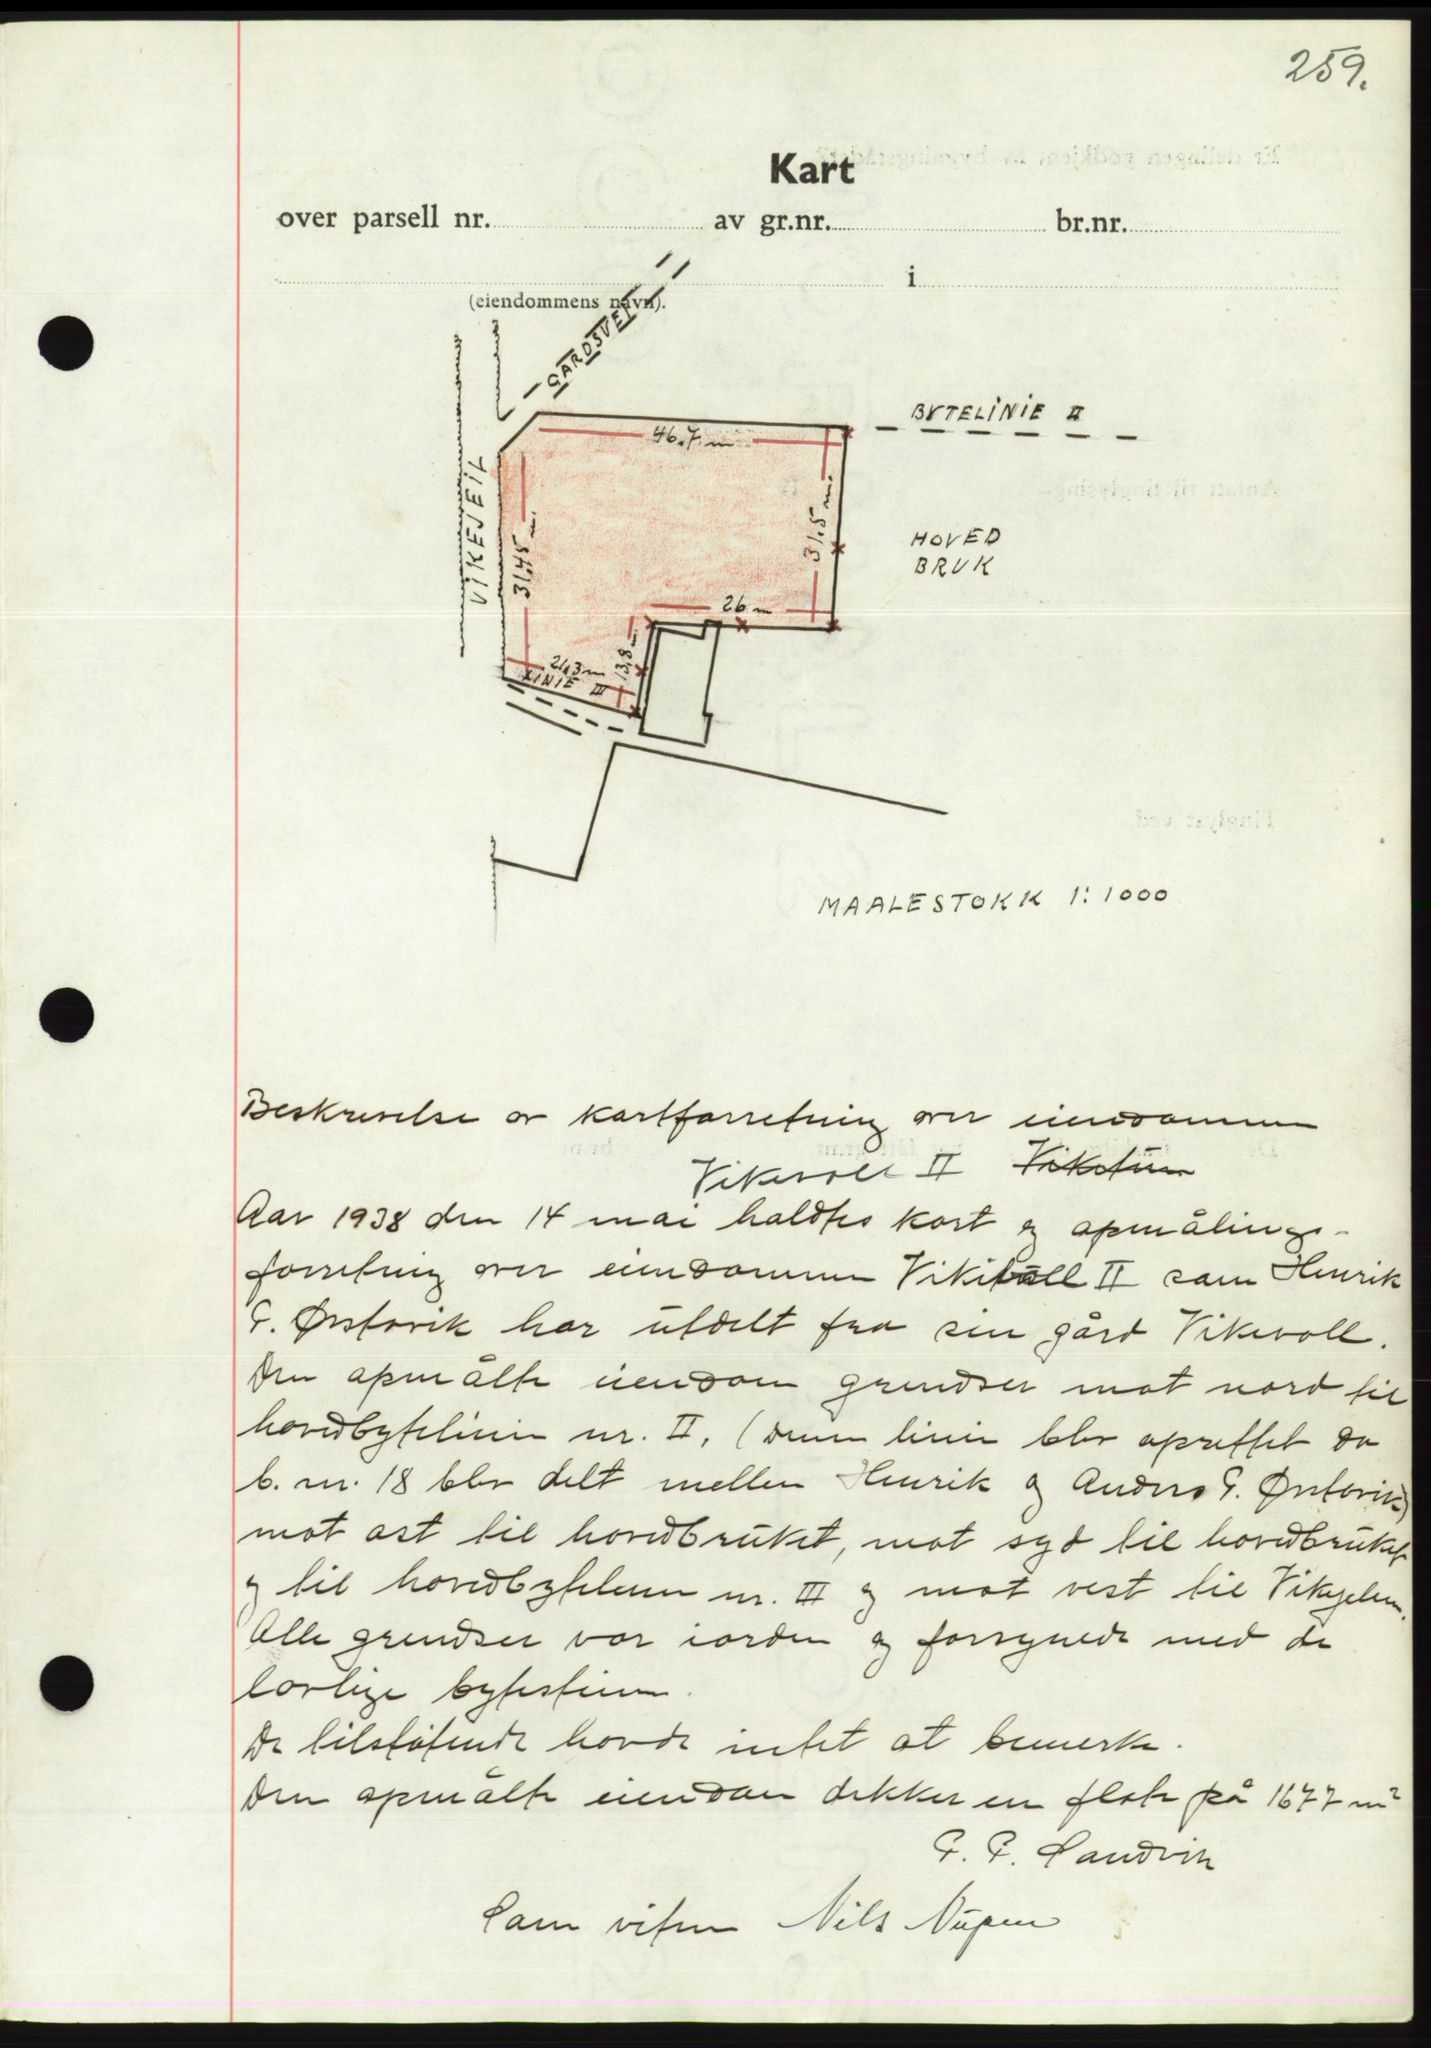 259.
Kart
over parsell nr. av gr.nr. br.nr.
i
(eiendommens navn).
GARDSVEI
BYTELINIE II
46.7 m
VIKEJEIL
31,45 m.
31.5 m.
HOVED
BRUK
26 m
13,8 m.
21,3 m
LINIE III
MAALESTOKK 1:1000
Beskrivelse av kartforretning over eiendommen
Vikevoll II Viketun
Aar 1938 den 14 mai holdtes kart og opmålings-
forretning over eiendommen Vikevoll II som Henrik
G. Ørstavik har utdelt fra sin gård Vikevoll.
Den opmålte eiendom grendser mot nord til
hovedbytelinie nr. II, (denne linie blev oprettet da
b. nr. 18 blev delt mellem Henrik og Anders G. Ørstavik)
mot ost til hovedbruket, mot syd til hovedbruket
og til hovedbytelinie nr. III og mot vest til Vikejeilen.
Alle grendser var iorden og forsynede med de
lovlige bytesteiner.
De tilstøtende havde intet at bemerke.
Den opmålte eiendom dekker en flate på 1677 m²
G. G. Sandvik
Som vitne Nils Nupen